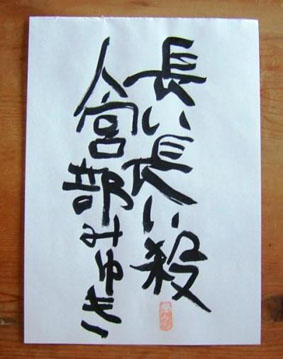 長い長い殺
人宮部みゆき